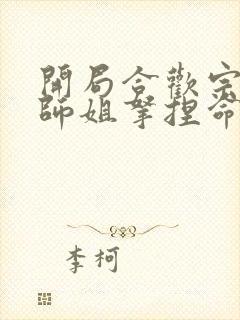 開局合歡宗
師姐拏捏命
李柯